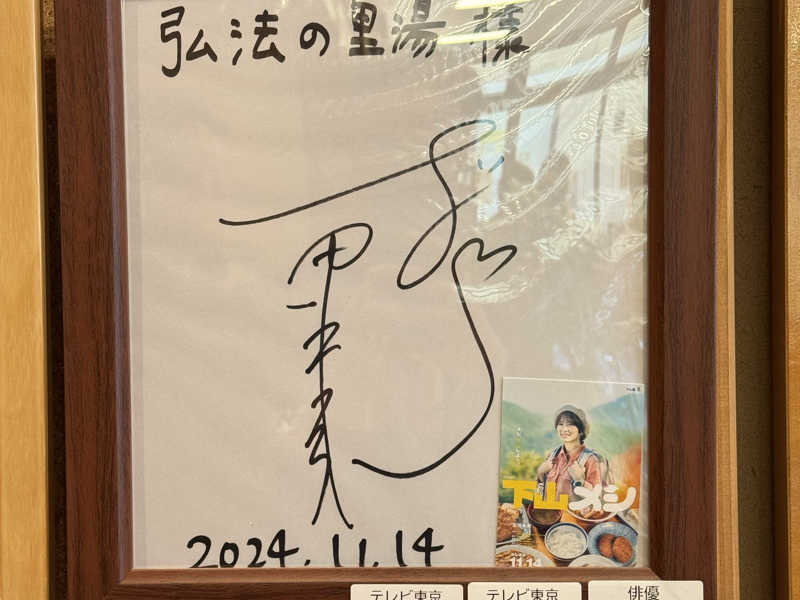 弘法の里湯 様
2024.11.14
下山メシ
11.14
テレビ東京
テレビ東京
俳優